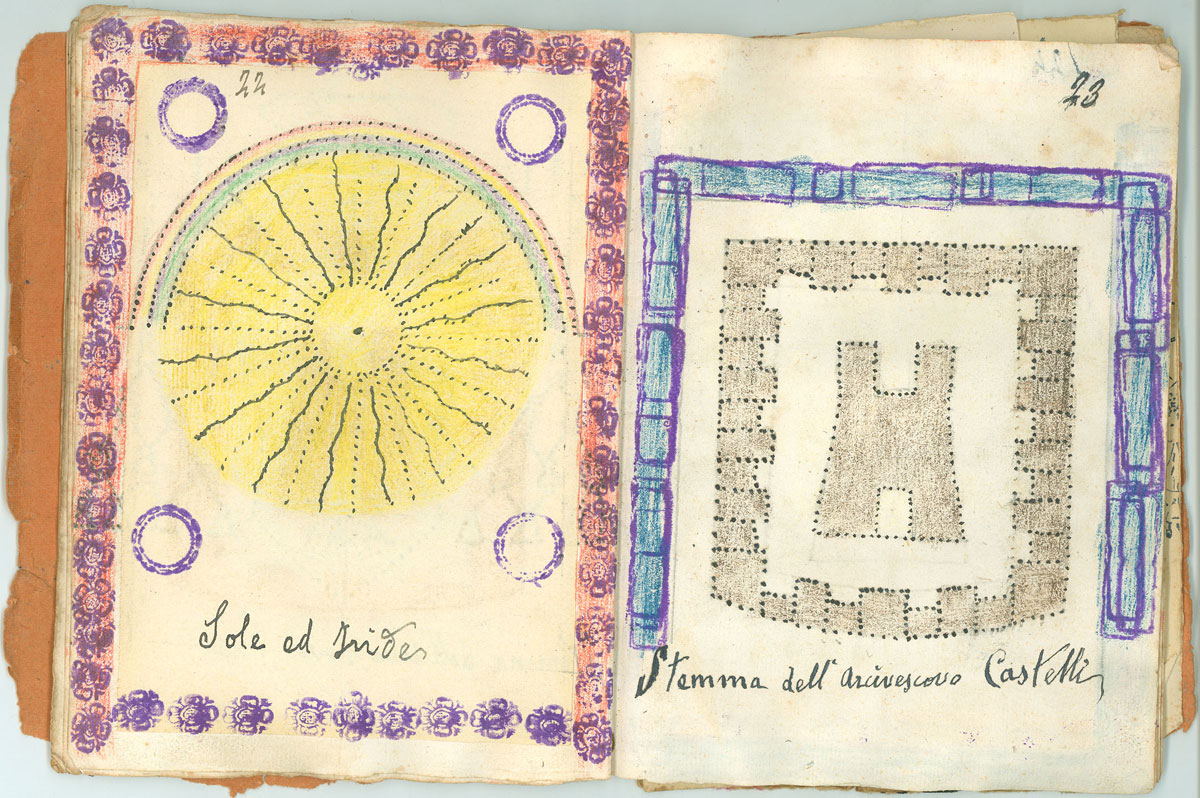 22
Sole ed Iride
23
Stemma dell' Arcivescovo Castelli